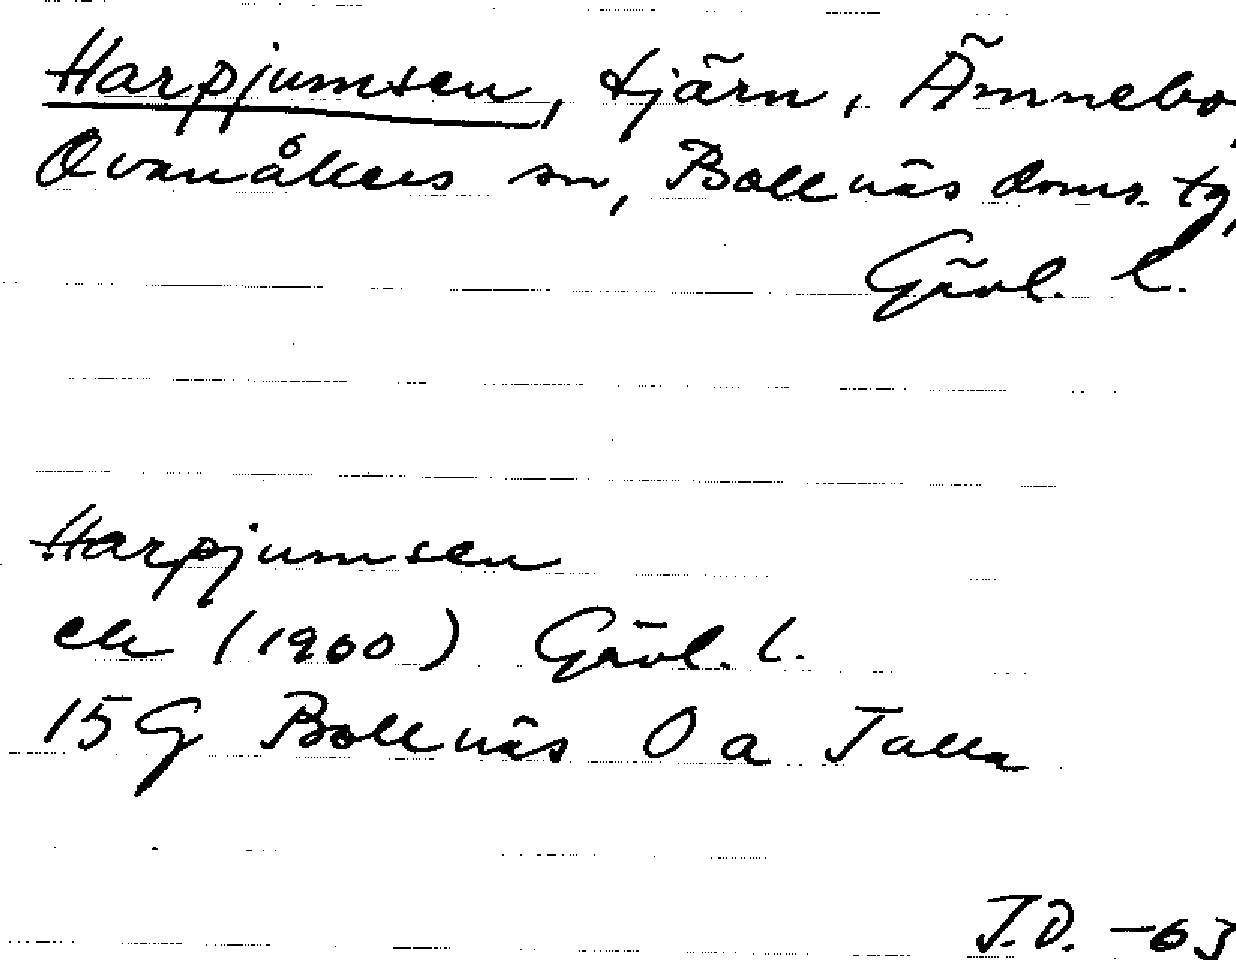 Harpjumsen, tjärn, Ämnebo,
Ovanåkers sn, Bollnäs doms. tg,
Gävl. l.
Harpjumsen
ek (1900) Gävl. l.
15G Bollnäs O a Talla
J.D. -63